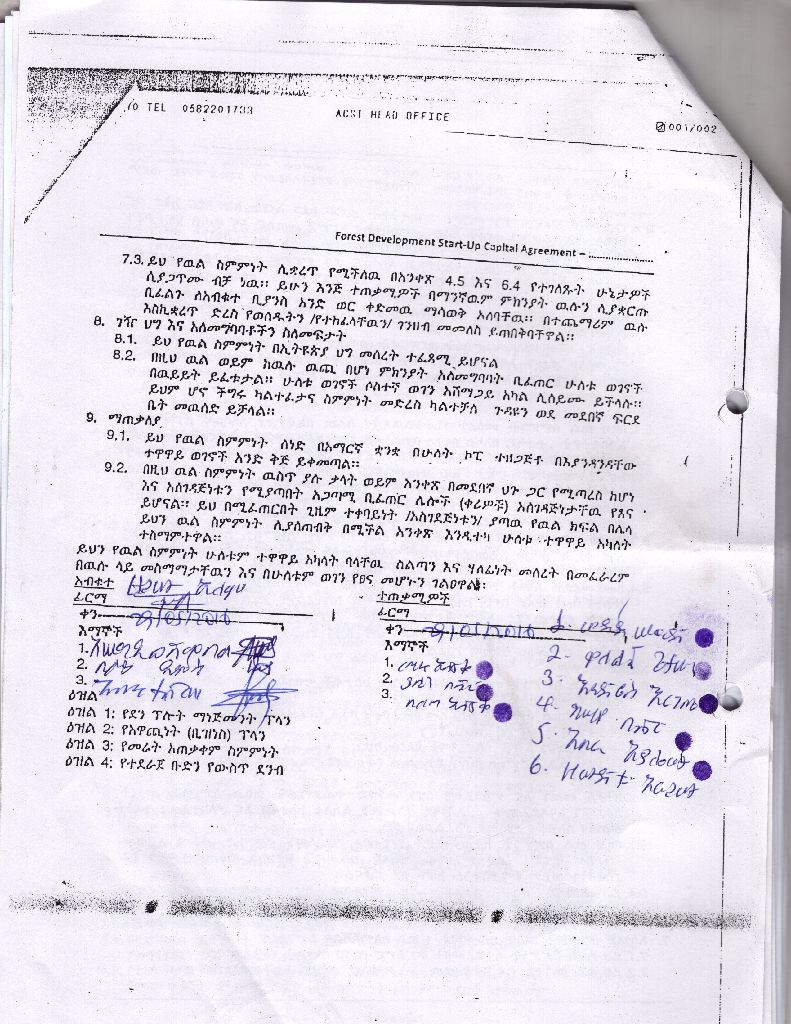 TEL 0582201733 ACSI HEAD OFFICE 001/002
Forest Development Start-Up Capital Agreement – ....................
7.3. ይህ የዉል ስምምነት ሊቋረጥ የሚችለዉ በአንቀጽ 4.5 እና 6.4 የተገለጹት ሁኔታዎች
ሲያጋጥሙ ብቻ ነዉ፡፡ ይሁን እንጅ ተጠቃሚዎች በማንኛዉም ምክንያት ዉሉን ሲያቋርጡ
ቢፈልጉ ለአብቁተ ቢያንስ አንድ ወር ቀድመዉ ማሳወቅ አለባቸዉ፡፡ በተጨማሪም ዉሉ
እስኪቋረጥ ድረስ የወሰዱትን /የተከፈላቸዉን/ ገንዘብ መመለስ ይጠበቅባቸዋል፡፡
8. ገዥ ህግ እና አለመግባባቶችን ስለመፍታት
8.1. ይህ የዉል ስምምነት በኢትዮጵያ ህግ መሰረት ተፈጻሚ ይሆናል
8.2. በዚህ ዉል ወይም ከዉሉ ዉጪ በሆነ ምክንያት አለመግባባት ቢፈጠር ሁለቱ ወገኖች
በዉይይት ይፈቱታል፡፡ ሁለቱ ወገኖች ሶስተኛ ወገን አሸማጋይ አካል ሊሰይሙ ይችላሉ፡፡
ይህም ሆኖ ችግሩ ካልተፈታና ስምምነት መድረስ ካልተቻለ ጉዳዩን ወደ መደበኛ ፍርድ
ቤት መዉሰድ ይቻላል፡፡
9. ማጠቃለያ
9.1. ይህ የዉል ስምምነት ሰነድ በአማርኛ ቋንቋ በሁለት ኮፒ ተዘጋጅቶ በእያንዳንዳቸው
ተዋዋይ ወገኖች አንድ ቅጅ ይቀመጣል፡፡
9.2. በዚህ ዉል ስምምነት ዉስጥ ያሉ ቃላት ወይም አንቀጽ በመደበኛ ህጉ ጋር የሚጣረስ ከሆነ
እና አስገዳጅነቱን የሚያጣበት አጋጣሚ ቢፈጠር ሌሎች (ቀሪዎች) አስገዳጅነታቸዉ የጸና
ይሆናል፡፡ ይህ በሚፈጠርበት ጊዜም ተቀባይነት /አስገዳጅነቱን/ ያጣዉ የዉል ክፍል በሌላ
ይህን ዉል ስምምነት ሊያስጠብቅ በሚችል አንቀጽ እንዲተካ ሁለቱ ተዋዋይ አካላት
ተስማምተዋል፡፡
ይህን የዉል ስምምነት ሁለቱም ተዋዋይ አካላት ባላቸዉ ስልጣን እና ሃላፊነት መሰረት በመፈራረም
በዉሉ ላይ መስማማታቸዉን እና በሁለቱም ወገን የፀና መሆኑን ገልፀዋል፡
አብቁተ
ፊርማ
ቀን 29/05/2010
እማኞች
1.
2.
3.
ተጠቃሚዎች
ፊርማ
ቀን 29/05/2010
እማኞች
1.
2.
3.
1.
2.
3.
4.
5.
6.
ዕዝል
ዕዝል 1: የደን ፕሎት ማኔጅመንት ፕላን
ዕዝል 2: የአዋጪነት (ቢዝነስ) ፕላን
ዕዝል 3: የመሬት አጠቃቀም ስምምነት
ዕዝል 4: የተደራጀ ቡድን የውስጥ ደንብ